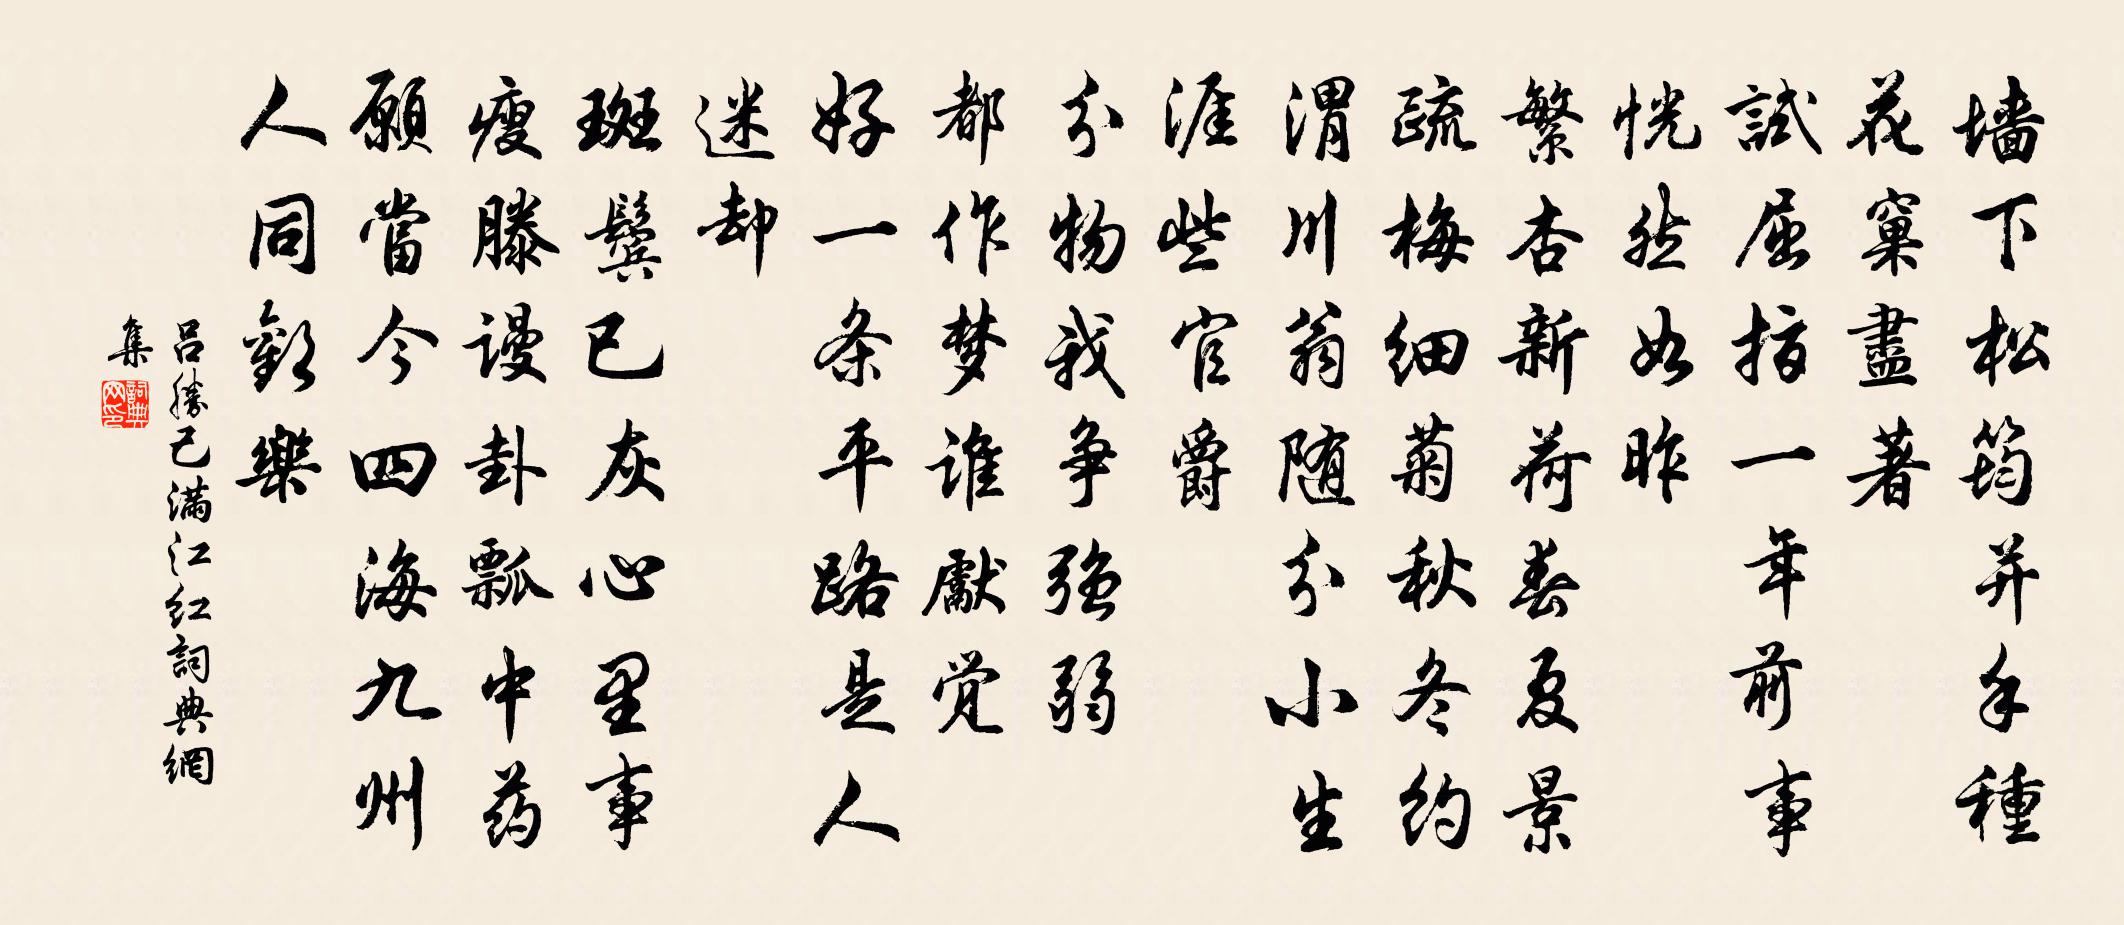 墙下松筠并手種
花窠盡著
試屈指一年前事
恍然如昨
繁杏新荷春夏景
疏梅细菊秋冬约
渭川翁随分小生
涯些官爵
分物我争强弱
都作梦谁獻觉
好一条平路是人
迷却
斑鬓已灰心里事
瘦藤谩卦瓢中药
願當今四海九州
人同歡樂
吕勝己满江红詞典網
集
詞典
网印